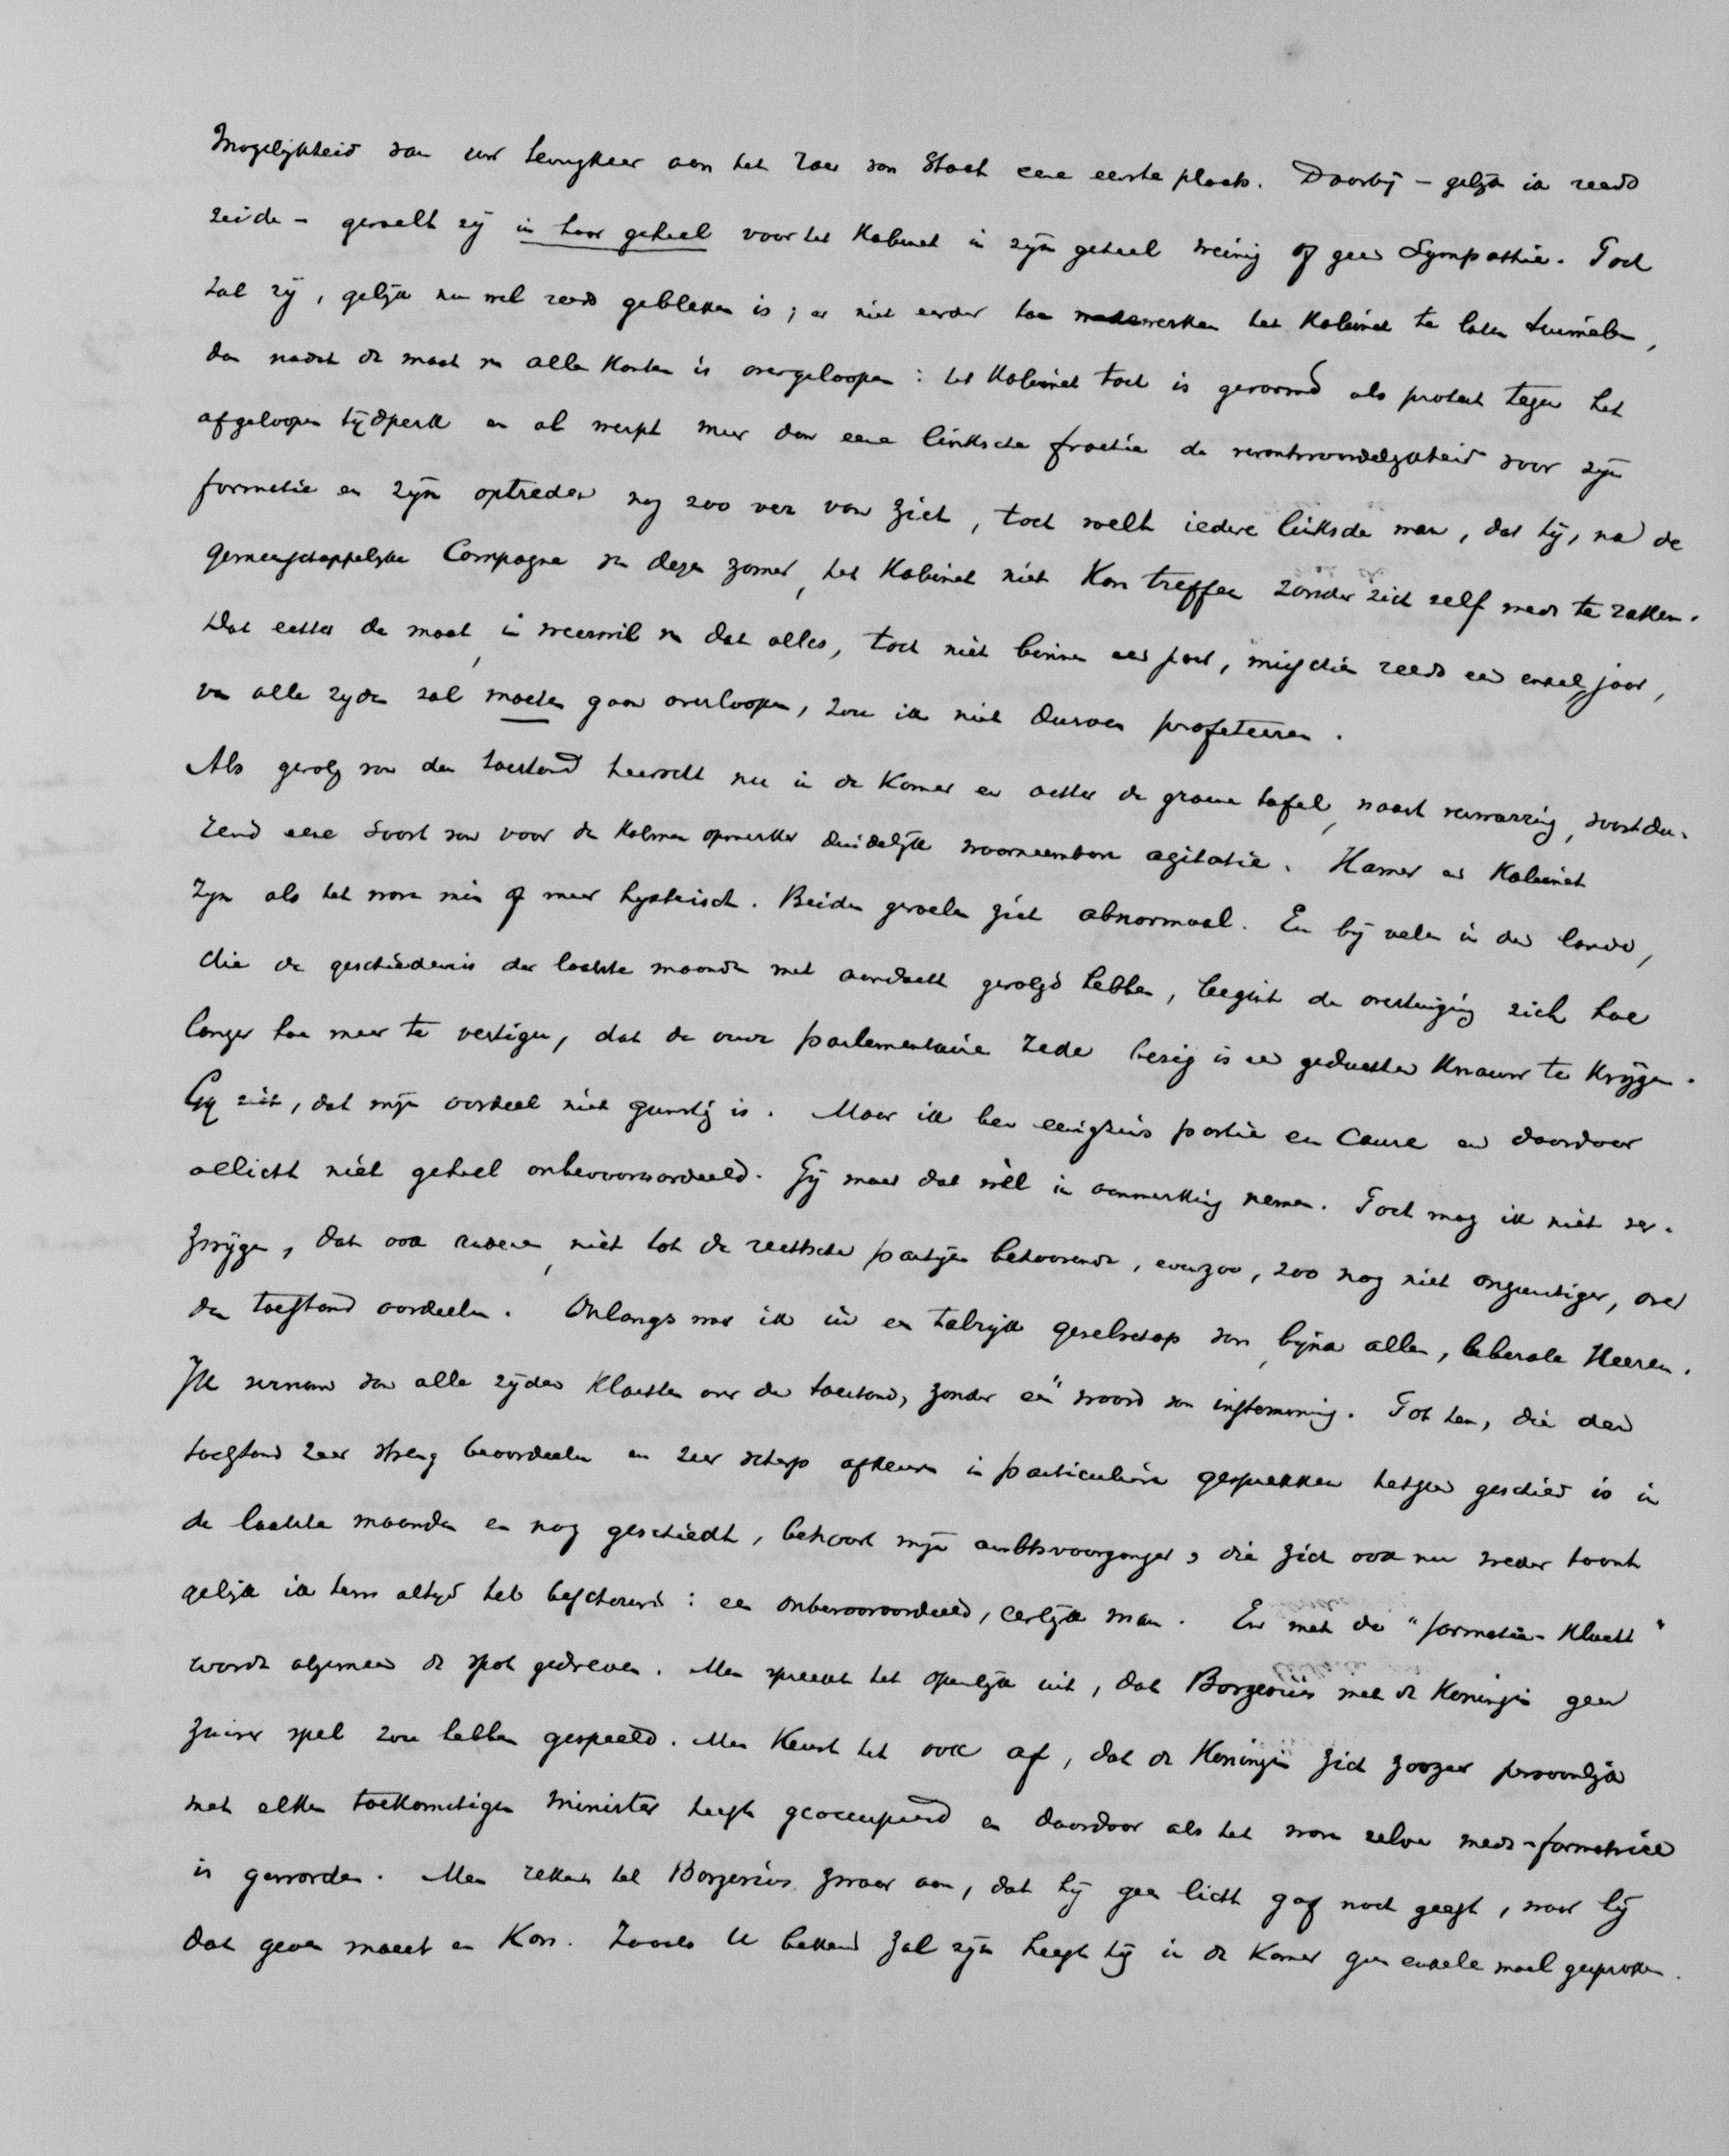 mogelijkheid van uw terugkeer aan het roer van Staat eene eerste plaats. Daarbij – gelijk ik reeds
zeide – gevoelt zij in haar geheel voor het Kabinet in zijn geheel weinig of geen Sympathie. Toch
zal zij, gelijk nu wel reeds gebleken is, er niet eerder toe medewerken het Kabinet te laten tuimelen,
dan nadat de maat van alle Kanten is overgeloopen: het Kabinet toch is gevormd als protest tegen het
afgeloopen tijdperk en al werpt meer dan eene linksche fractie de verantwoordelijkheid voor zijn
formatie en zijn optreden nog zoo ver van zich, toch voelt iedere linksche man, dat hij, na de
gemeenschappelijke Campagne van dezen zomer, het Kabinet niet Kan treffen zonder zich zelf mede te raken.
Dat echter de maat, in weerwil van dat alles, toch niet binnen een paar, misschien reeds een enkel jaar,
van alle zijden zal moeten gaan overloopen, zou ik niet durven profeteeren.
Als gevolg van den toestand heerscht nu in de Kamer en achter de groene tafel, naast verwarring, voortdu-
rend eene soort van voor de Kalmen opmerker duidelijk waarneembare agitatie. Kamer en Kabinet
zijn als het ware min of meer hysterisch. Beiden gevoelen zich abnormaal. En bij velen in den lande,
die de geschiedenis der laatste maanden met aandacht gevolgd hebben, begint de overtuiging zich hoe
langer hoe meer te vestigen, dat de oude parlementaire zede bezig is een geduchten Knauw te Krijgen.
Gij ziet, dat mijn oordeel niet gunstig is. Maar ik ben eenigszins partie en cause en daardoor
allicht niet geheel onbevooroordeeld. Gij moet dat wèl in aanmerking nemen. Toch mag ik niet ver-
zwijgen, dat ook anderen, niet tot de rechtsche partijen behoorende, evenzoo, zoo nog niet ongunstiger, over
den toestand oordeelen. Onlangs was ik in een talrijk gezelschap van, bijna allen, liberale Heeren.
Ik vernam van alle zijden Klachten over den toestand, zonder één woord van instemming. Tot hen, die den
toestand zeer streng beoordeelen en zeer scherp afkeuren in particuliere gesprekken hetgeen geschied is in
de laatste maanden en nog geschiedt, behoort mijn ambtsvoorganger, die zich ook nu weder toont
gelijk ik hem altijd heb beschouwd: een onbevooroordeeld, eerlijk man. En met de "formatie-Klucht"
wordt algemeen de spot gedreven. Men spreekt het openlijk uit, dat Borgesius met de Koningin geen
zuiver spel zou hebben gespeeld. Men Keurt het ook af, dat de Koningin zich zoozeer persoonlijk
met elken toekomstigen minister heeft geoccupeerd en daardoor als het ware zelve mede-formatrice
is geworden. Men rekent het Borgesius zwaar aan, dat hij geen licht gaf noch geeft, waar hij
dat geven moest en Kon. Zooals U bekend zal zijn heeft hij in de Kamer geen enkele maal gesproken.